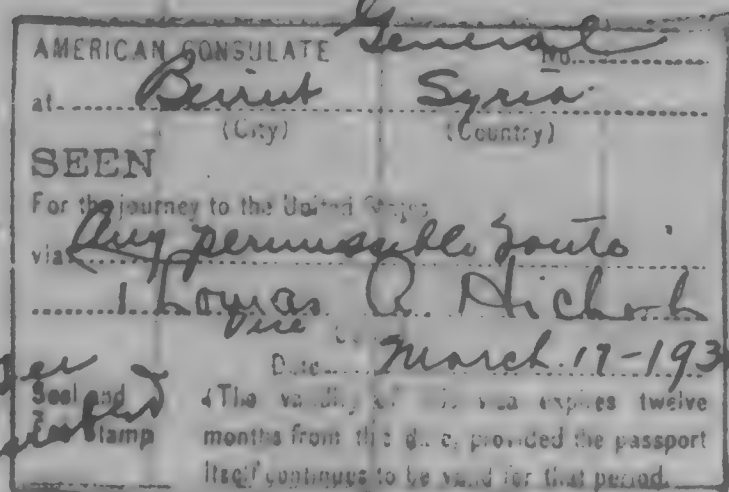 AMERICAN CONSULATE General No.
at Beirut Syria
(City) (Country)
SEEN
For the journey to the United States
via Any permissible route
Thomas
Vice
Date March 17-193
Seal and
Fee Stamp
(The validity of this visa expires twelve
months from this date, provided the passport
itself continues to be valid for that period.